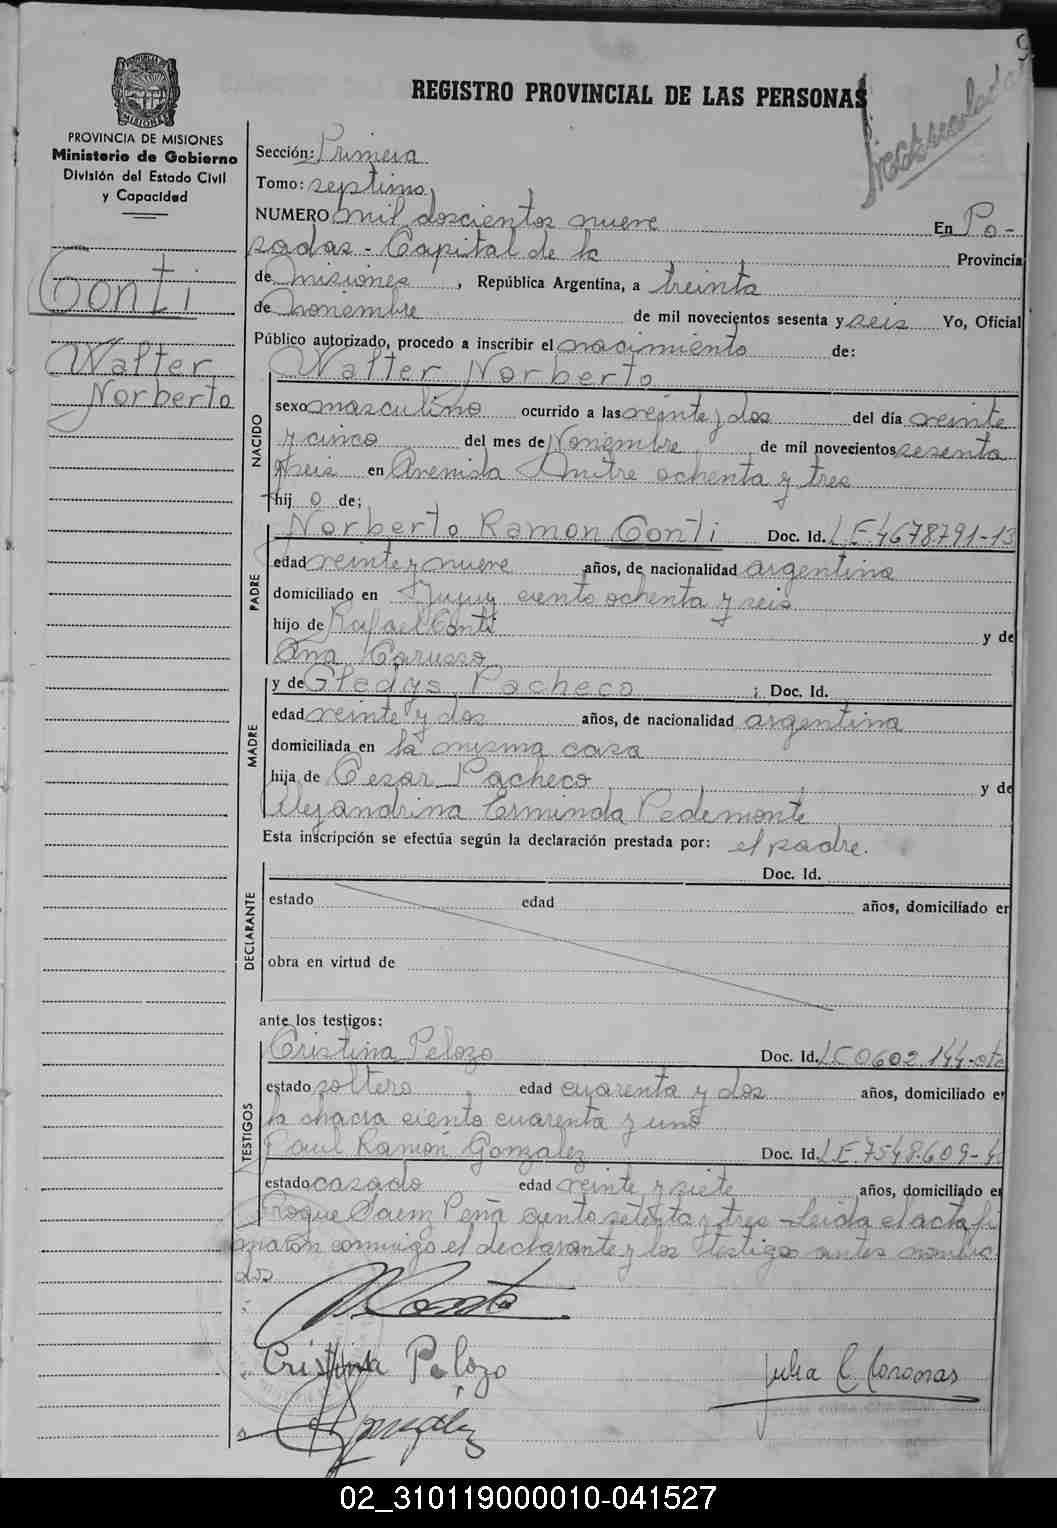 REGISTRO PROVINCIAL DE LAS PERSONAS
PROVINCIA DE MISIONES
Ministerio de Gobierno
División del Estado Civil
y Capacidad
Conti
Walter
Norberto
Sección: Primera
Tomo: septimo
NUMERO mil doscientos nueve En Po-
sadas - Capital de la Provincia
de Misiones, República Argentina, a treinta
de Noviembre de mil novecientos sesenta y seis Yo, Oficial
Público autorizado, procedo a inscribir el nacimiento de:
Walter Norberto
NACIDO
sexo masculino ocurrido a las veinte y dos del día veinte
y cinco del mes de Noviembre de mil novecientos sesenta
y seis en Avenida Mitre ochenta y tres
hij o de;
PADRE
Norberto Ramon Conti Doc. Id. L.E. 4678791-13
edad veinte y nueve años, de nacionalidad argentina
domiciliado en Jujuy ciento ochenta y seis
hijo de Rafael Conti y de
Ana Carusso
MADRE
y de Gladys Pacheco; Doc. Id.
edad veinte y dos años, de nacionalidad argentina
domiciliada en la misma casa
hija de Cesar Pacheco y de
Alejandrina Erminda Pedemonte
Esta inscripción se efectúa según la declaración prestada por: el padre.
DECLARANTE
Doc. Id.
estado edad años, domiciliado en
obra en virtud de
ante los testigos:
TESTIGOS
Cristina Pelozo Doc. Id. LC 0602.144
estado soltera edad cuarenta y dos años, domiciliado en
la chacra ciento cuarenta y uno
Raul Ramón Gonzalez Doc. Id. L.E. 7548.609
estado casado edad veinte y siete años, domiciliado en
Roque Saenz Peña ciento setenta y tres - Leida el acta fir
maron conmigo el declarante y los testigos antes nombra
dos
Cristina Pelozo
Julia C. Coronas
González
02_310119000010-041527